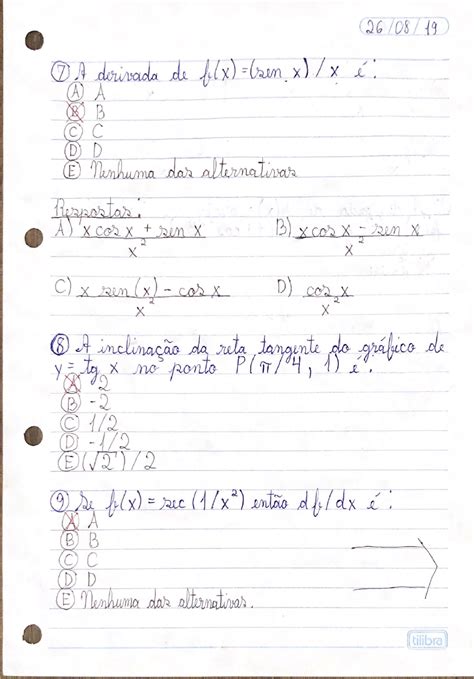 26/08/19
7 A derivada de f(x)=(sen x)/x é:
A A
B B
C C
D D
E Nenhuma das alternativas
Respostas:
A) x cos x + sen x B) x cos x - sen x
x² x²
C) x sen(x) - cos x D) cos x
x² x²
8 A inclinação da reta tangente do gráfico de
y = tg x no ponto P(π/4, 1) é:
A 2
B -2
C 1/2
D -1/2
E (√2)/2
9 Se f(x) = sec(1/x²) então df/dx é:
A A
B B
C C
D D
E Nenhuma das alternativas.
tilibra